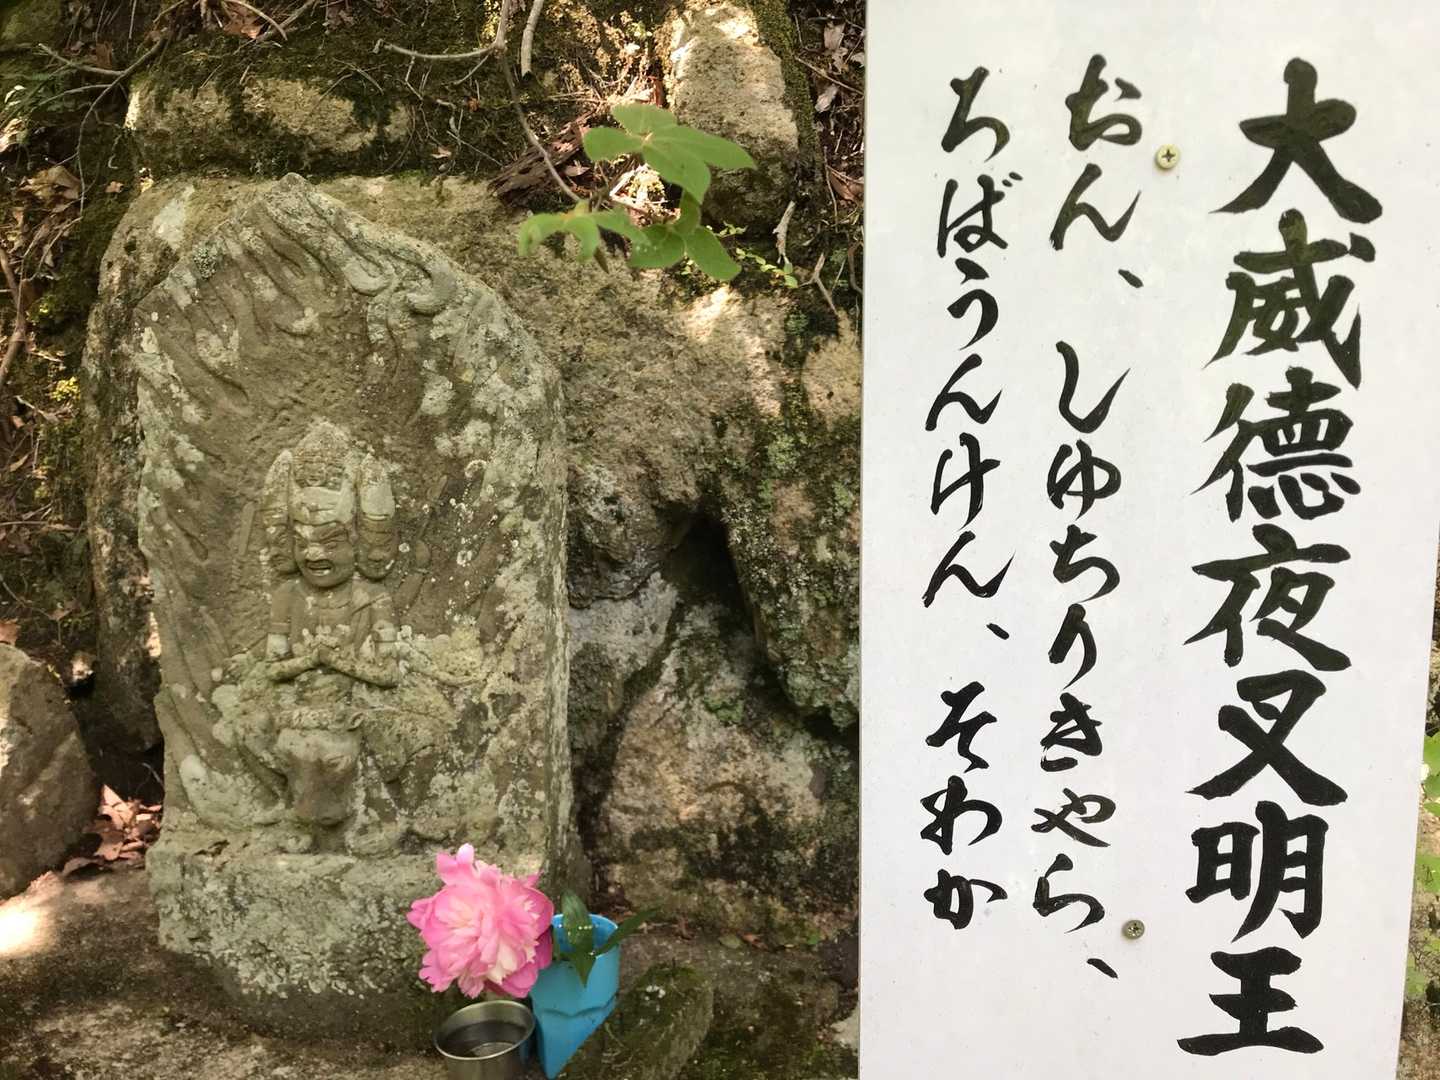 大威徳夜叉明王
おん、しゆちりきやら、
ろばうんけん、そわか